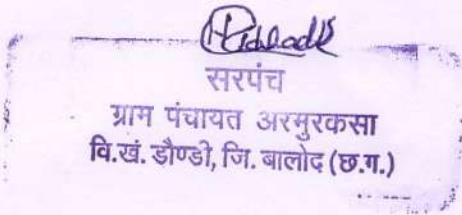 सरपंच
ग्राम पंचायत अरमुरकसा
वि.खं. डौण्डी, जि. बालोद (छ.ग.)